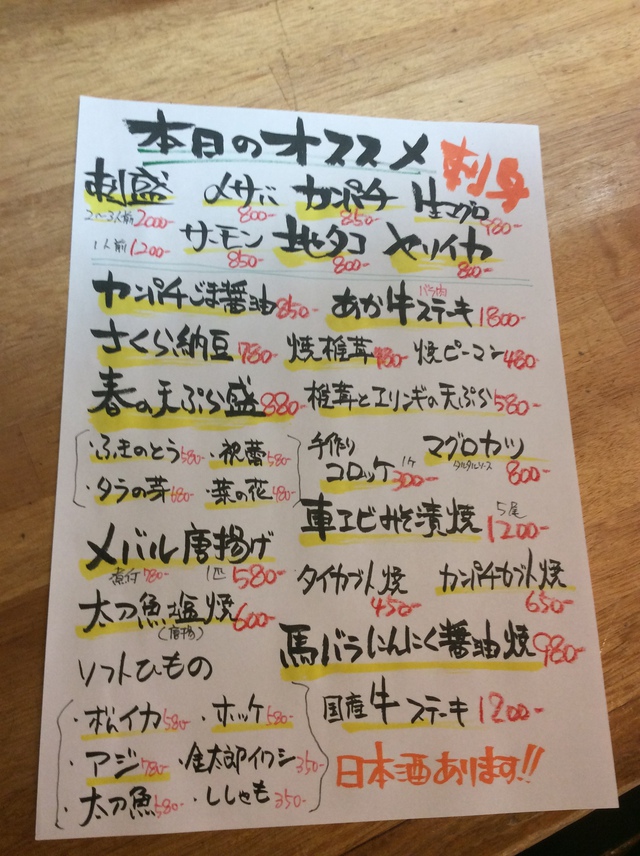 本日のオススメ 刺身
刺盛 〆サバ カンパチ 生マグロ
2〜3人前 2000- 800- 850- 980-
1人前 1200- サーモン 地タコ ヤリイカ
850- 800- 800-
カンパチごま醤油 850- あか牛ステーキ バラ肉 1800-
さくら納豆 780- 焼椎茸 480- 焼ピーマン 480-
春の天ぷら盛 880- 椎茸とエリンギの天ぷら 580-
・ふきのとう 580- ・祝蕾 580-
・タラの芽 680- ・菜の花 480-
手作りコロッケ 1ケ 300- マグロカツ タルタルソース 800-
車エビみそ漬焼 5尾 1200-
メバル唐揚げ 1匹 580-
煮付 780-
タイカブト焼 450- カンパチカブト焼 650-
太刀魚塩焼 600-
(唐揚)
馬バラにんにく醤油焼 980-
ソフトひもの
・ホンイカ 580- ・ホッケ 580-
・アジ 780- ・金太郎イワシ 350-
・太刀魚 580- ・ししゃも 350-
国産牛ステーキ 1200-
日本酒あります!!